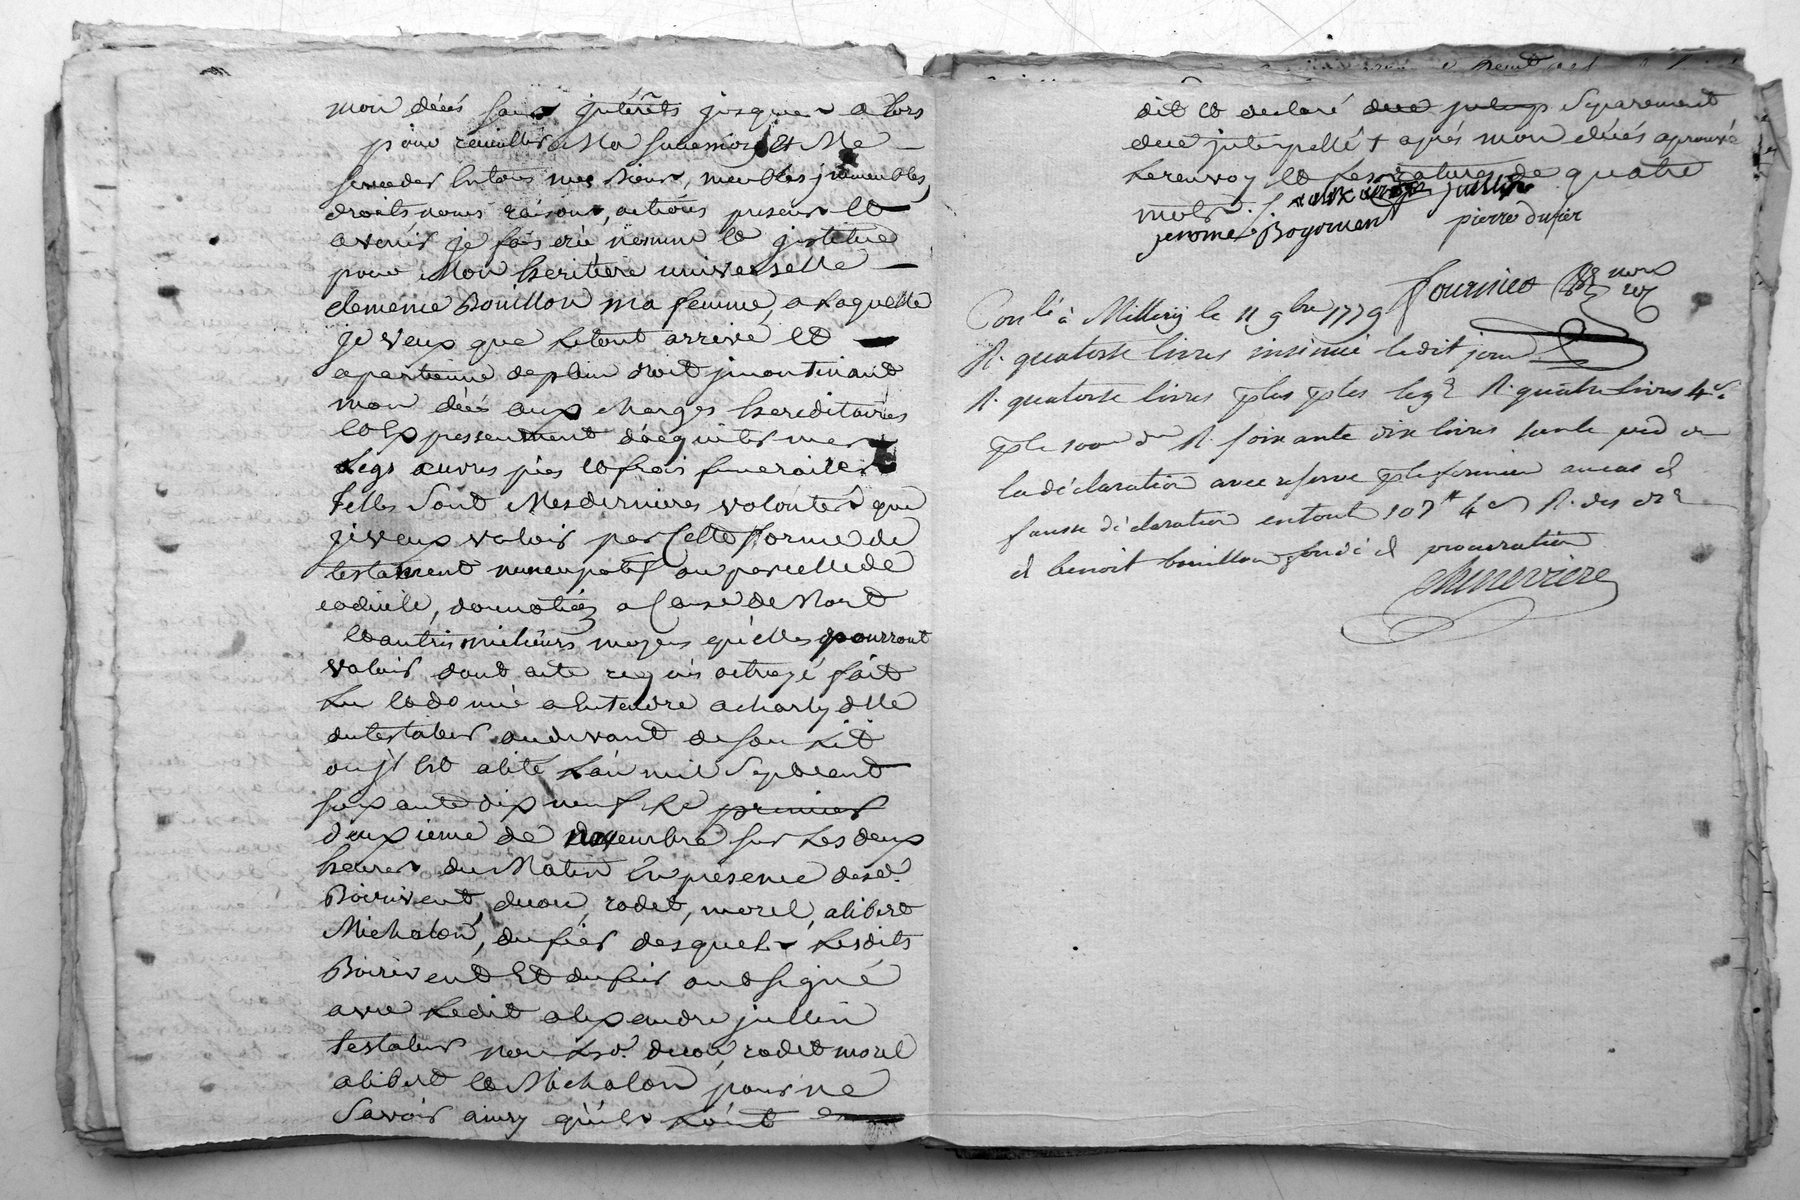 mon décés sans jntérêts jusques a lors
pour recuillir Ma sucession et Me
succeder En tous mes biens, meubles jmmeubles
droits noms raisons, actions presens et
avenir je fais crée nomme et jnstitue
pour Mon heritiere universelle
clemence Bouillon ma femme, a Laquelle
je veux que Letout arrive et
apartienne de plein droit jncontinant
mon décés aux charges hereditaires
et Expressement d'acquiter mes
Legs œuvres pies et frais funerailles
telles sont Mes dernieres volontés que
je veux valoir par Cette forme de
testament nuncupatif ou par celle de
codicile, donnation a Cause de Mort
et autres milieurs moyens qu'elles pourront
valoir dont acte requis octroyé fait
Lu et donné a Entendre a charly
du testateur au devant de son Lit
ou jl Est alité L'an mil Sept cent
soixante dix neuf Le premier
deuxieme de novembre sur Les deux
heures du Matin En presence des
Boirivent, rodet, morel, alibert
Michalon, dufier desquels Lesdits
Boirivent Et dufier ont signé
avec Ledit alexandre jullin
testateur non Les rodet morel
alibert et Michalon pour ne
Savoir ainsy qu'ils L'ont
dit et declaré Separement
jnterpellé + aprés mon décés aprouvé
Le renvoy et Les ratures de quatre
mots. jullin
jerome Boyrivent pierre dufier
fournier
Con.lé à Millery le 11 9bre 1779
R. quatorse livres insinué ledit jour
R. quatorse livres R. quatre livres 4 s.
R. soixante dix livres
la déclaration avec reserve au cas d
fausse déclaration en tout 107 lt 4 s R. des
d benoit bouillon fondé d procuration
Chenevriere